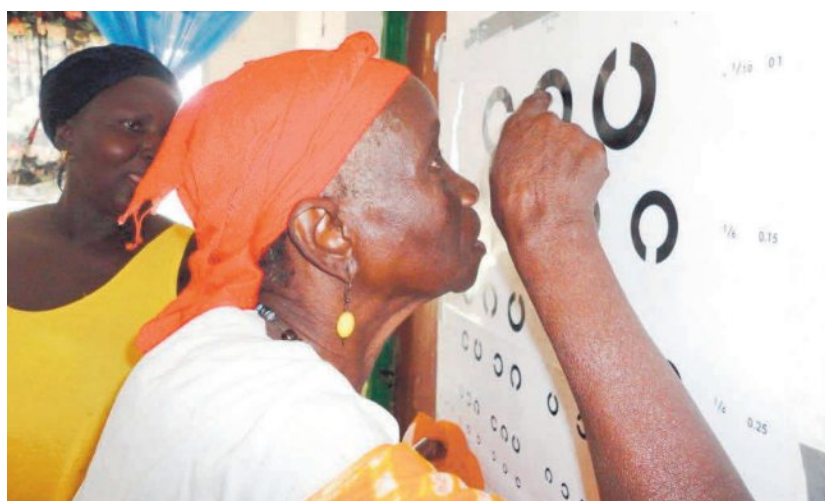 1/10 0.1
1/6 0.15
1/4 0.25